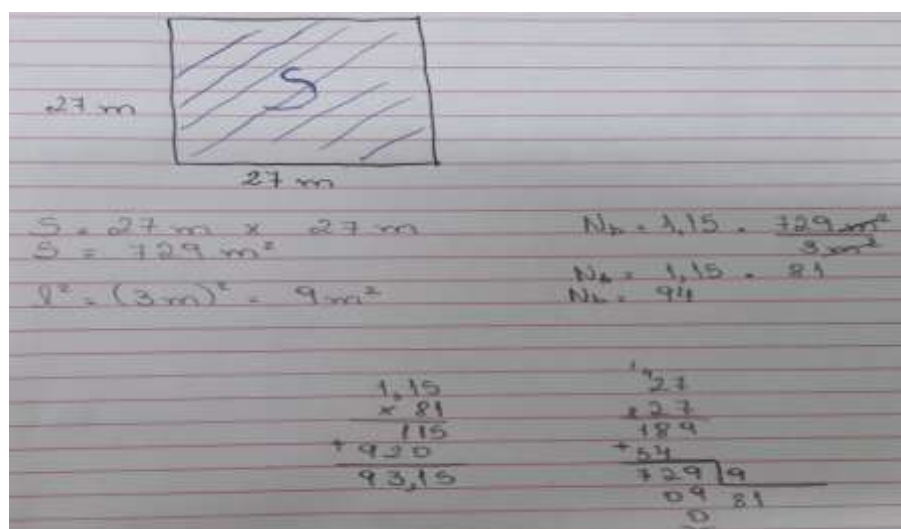 S
27 m
27 m
S = 27 m x 27 m
S = 729 m²
l² = (3 m)² = 9 m²
Nb = 1,15 . 729 m²
3 m²
Nb = 1,15 . 81
Nb = 94
1,15
x 81
115
+ 920
93,15
1 4
27
x 27
189
+ 54
729 | 9
09 81
0